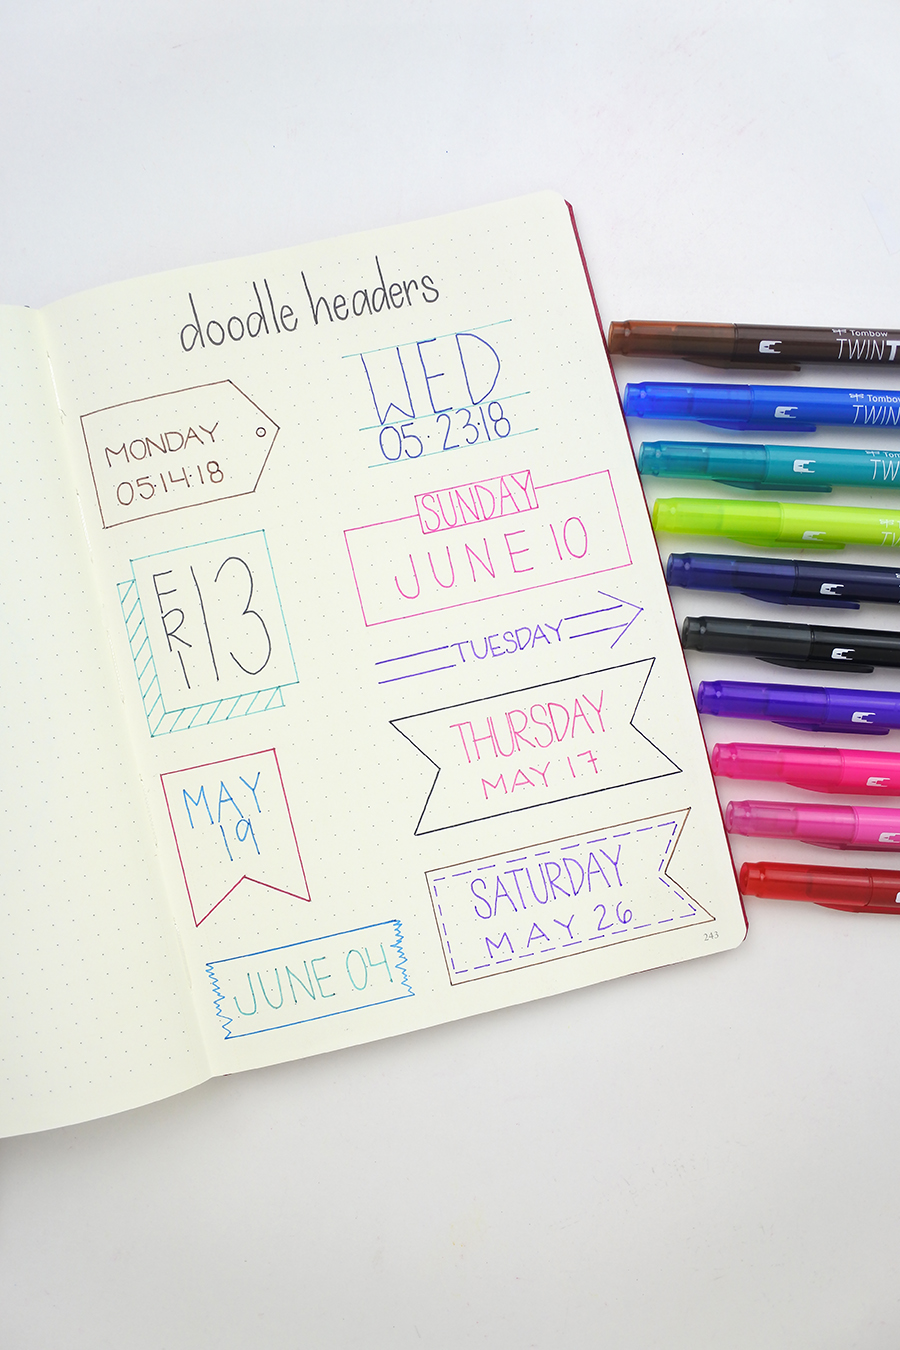 doodle headers
MONDAY
05·14·18
WED
05·23·18
FRI 13
SUNDAY
JUNE 10
TUESDAY
THURSDAY
MAY 17
MAY
19
SATURDAY
MAY 26
JUNE 04
243
Tombow
TWINT
Tombow
TWIN
Tom
TW